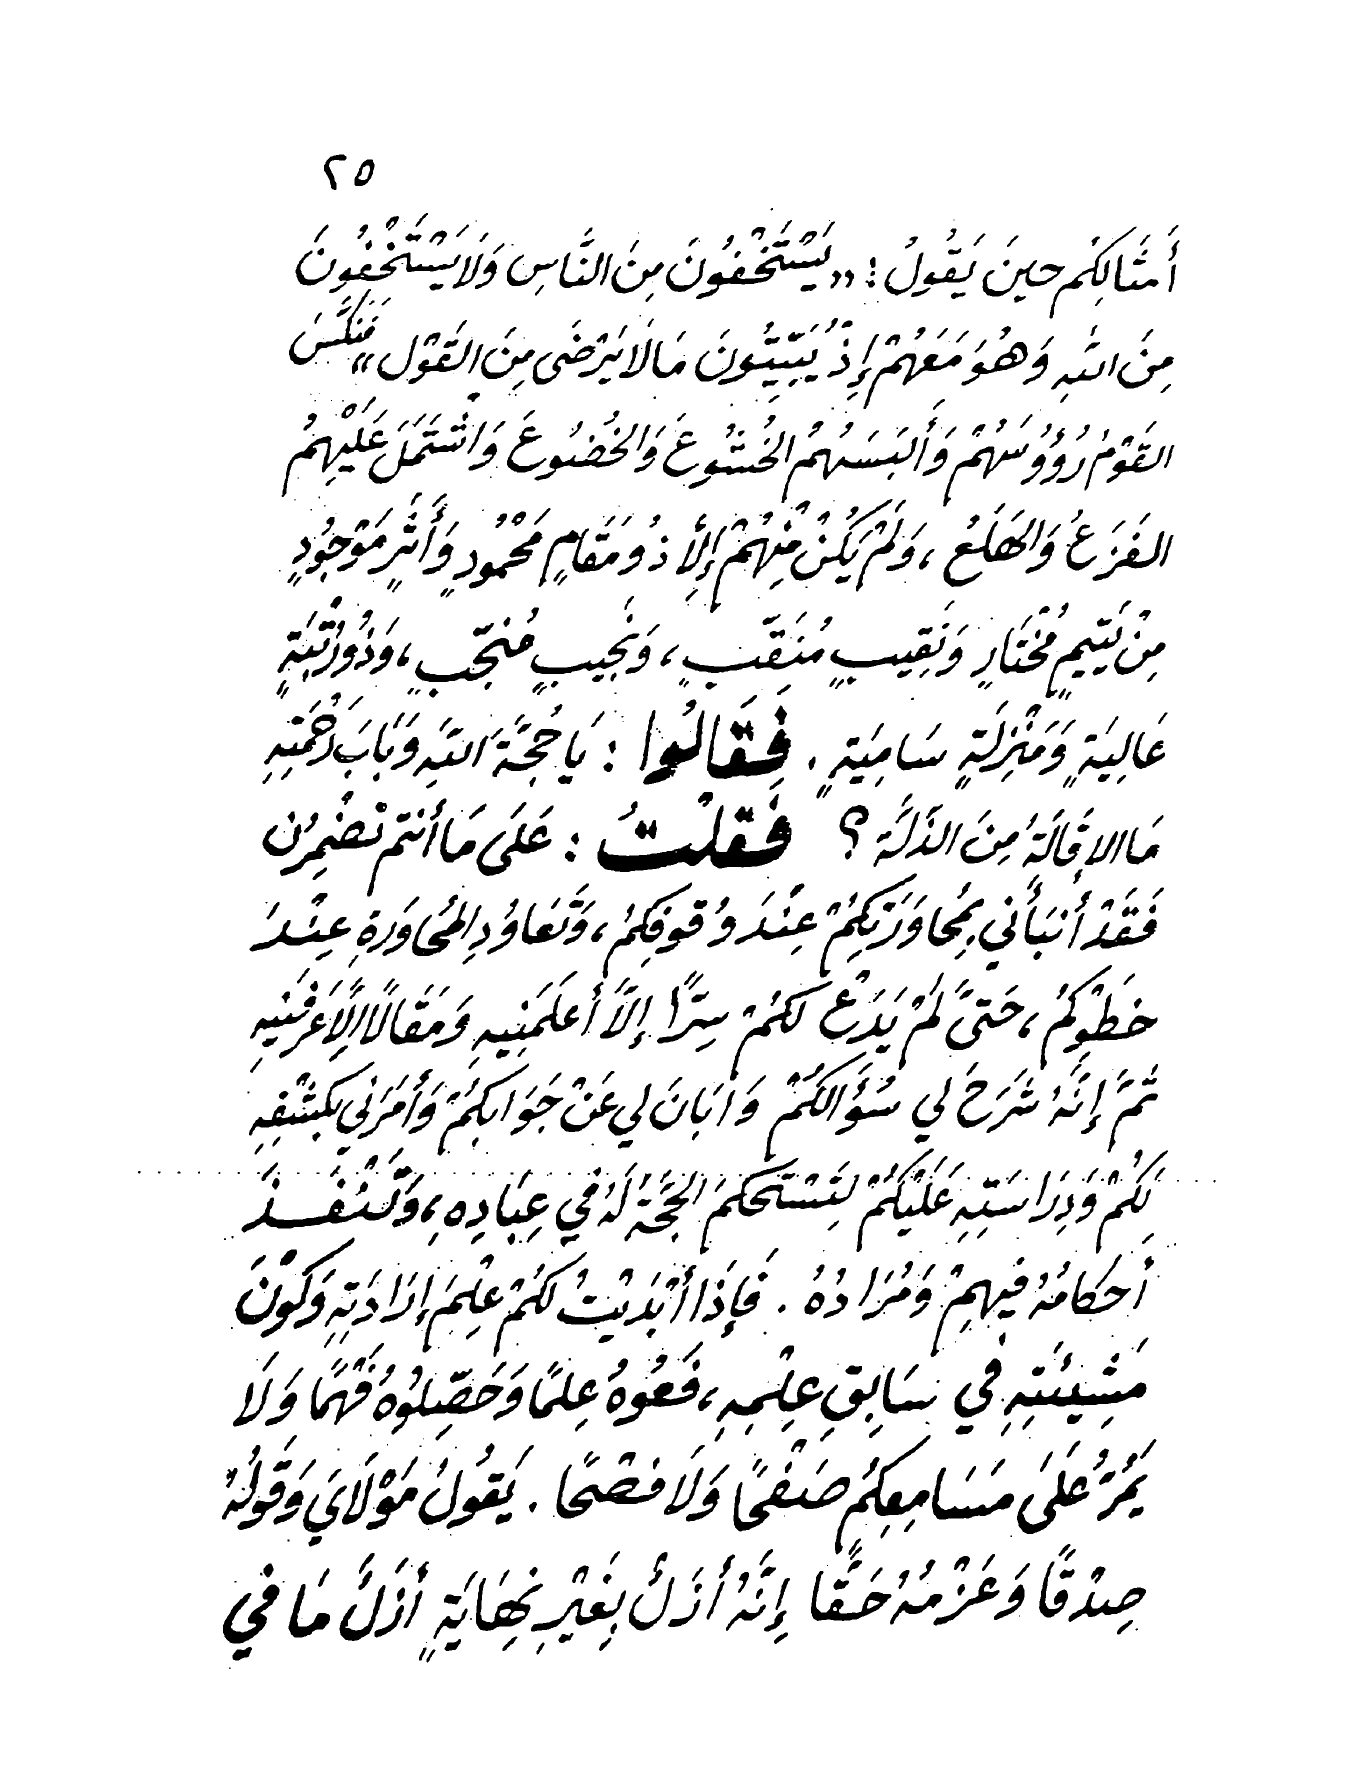 ٢٥
أَمثَالِكُم حينَ يَقُولُ : «يَسْتَخْفُونَ مِنَ النَّاسِ وَلَا يَسْتَخْفُونَ
مِنَ اللهِ وَهُوَ مَعَهُمْ إِذْ يُبَيِّتُونَ مَا لَا يَرْضَى مِنَ القَوْل» فَنَكَّسَ
القَوْمُ رُؤُوسَهُمْ وَأَلبَسَهُمُ الخُشُوعَ وَالخُضُوعَ وَاشْتَمَلَ عَلَيْهِمُ
الفَزَعُ وَالهَلَعُ ، وَلَمْ يَكُنْ مِنْهُمْ إِلَّا ذُو مَقَامٍ مَحْمُودٍ وَأَثَرٍ مَوْجُودٍ
مِنْ يَتيمٍ مُخْتَارٍ وَنَقِيبٍ مُنَقَّبٍ ، وَنَجِيبٍ مُنجّبٍ ، وَذُورُتْبَةٍ
عَالِيَةٍ وَمَنْزِلَةٍ سَامِيَةٍ . فَقَالُوا : يَا حُجَّةَ اللهِ وَبَابَ رَحْمَتِهِ
مَا الإِقَالَةُ مِنَ الذَلَّة ؟ فَقُلْتُ : عَلَى مَا أَنتم تضْمِرُن
فَقَدْ أَنبَأَني بِمُحاوَرَتِكُمْ عِنْدَ وُقوفِكُمْ ، وَتَعَاوُدِ المُحَاوَرَةِ عِنْدَ
خَطوِكُمْ ، حَتىَّ لَمْ يَدَعْ لكُمْ سِرًّا إِلَّا أَعلَمَنِيهِ وَمَقَالًا إِلَّا عَرَّفَنِيهِ
ثُمَّ إِنَّهُ شَرَحَ لي سُؤَالَكُمْ وَأَبَانَ لي عَنْ جَوَابكُمْ وَأَمَرَني بكَشْفِهِ
لَكُمْ وَدِرَاسَتِهِ عَلَيْكُمْ لِتَسْتَحكمَ الحُجَّةُ لَهُ في عِبَادِهِ ، وَتَنْفُذَ
أَحكَامُهُ فيهِمْ وَمُرَادُهُ . فَإِذَا أَبْدَيْتُ لَكُمْ عِلْمَ إِرَادَتِهِ وَكَوْنَ
مَشِيئَتِهِ في سَابِقِ عِلْمِهِ ، فَعُوهُ عِلمًا وَحَصِّلوُهُ فَهْمًا وَلَا
يَمُرُّ عَلَى مَسَامِعِكُم صَفْحًا وَلَا فَضْحًا . يَقُولُ مَوْلَايَ وَقَولُهُ
صِدْقًا وَعَزْمُهُ حَقًّا إِنَّهُ أَزَلُ بِغَيْرِ نِهَايَةٍ أَزَلَّ مَا في